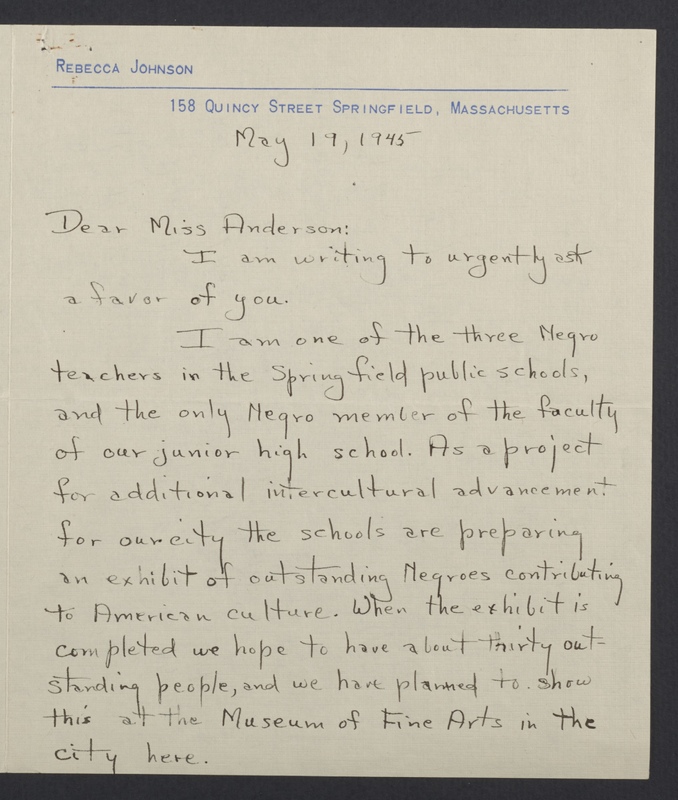 REBECCA JOHNSON
158 QUINCY STREET SPRINGFIELD, MASSACHUSETTS
May 19, 1945
Dear Miss Anderson:
I am writing to urgently ask
a favor of you.
I am one of the three Negro
teachers in the Springfield public schools,
and the only Negro member of the faculty
of our junior high school. As a project
for additional intercultural advancement
for our city the schools are preparing
an exhibit of outstanding Negroes contributing
to American culture. When the exhibit is
completed we hope to have about thirty out-
standing people, and we have planned to show
this at the Museum of Fine Arts in the
city here.